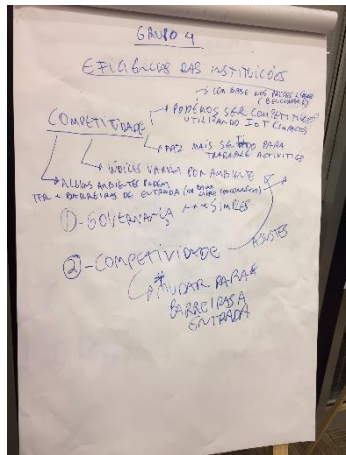 GRUPO 4
EFICIÊNCIA DAS INSTITUIÇÕES
COM BASE NOS PAÍSES LÍDERES
(BENCHMARK)
COMPETITIVIDADE
PODEMOS SER COMPETITIVOS
UTILIZANDO IOT
FAZ MAIS SENTIDO PARA
TRADABLE ACTIVITIES
ÍNDICES VARIAM POR AMBIENTE
ALGUNS AMBIENTES PODEM
TER + BARREIRAS DE ENTRADA
1 - GOVERNANÇA SIMPLES
2 - COMPETIVIDADE
AJUSTES
MUDAR PARA
BARREIRAS A
ENTRADA